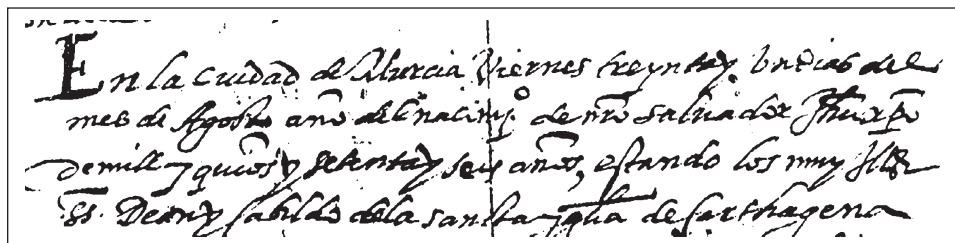 En la Ciudad de Murcia Viernes treynta y Un dias del
mes de Agosto año del naçimj.o de nro salvador Jhuxpo
de mill y quios y setenta y seis años, estando los muy Ills
SS. Dean y Cabildo de la sancta yglia de Carthagena